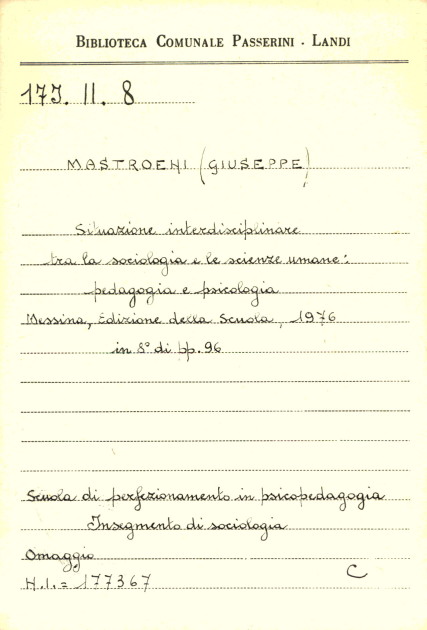 BIBLIOTECA COMUNALE PASSERINI - LANDI
17J. II. 8
MASTROENI (GIUSEPPE)
Situazione interdisciplinare
tra la sociologia e le scienze umane:
pedagogia e psicologia
Messina, Edizione della Scuola, 1976
in 8° di pp. 96
Scuola di perfezionamento in psicopedagogia
Insegmento di sociologia
Omaggio
H.I. = 177367
C